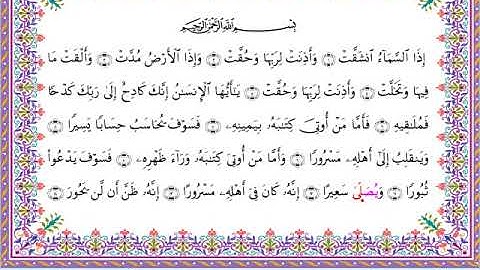 بِسْمِ ٱللَّهِ ٱلرَّحْمَٰنِ ٱلرَّحِيمِ
إِذَا ٱلسَّمَآءُ ٱنشَقَّتْ ۝ وَأَذِنَتْ لِرَبِّهَا وَحُقَّتْ ۝ وَإِذَا ٱلْأَرْضُ مُدَّتْ ۝ وَأَلْقَتْ مَا
فِيهَا وَتَخَلَّتْ ۝ وَأَذِنَتْ لِرَبِّهَا وَحُقَّتْ ۝ يَٰٓأَيُّهَا ٱلْإِنسَٰنُ إِنَّكَ كَادِحٌ إِلَىٰ رَبِّكَ كَدْحًا
فَمُلَٰقِيهِ ۝ فَأَمَّا مَنْ أُوتِيَ كِتَٰبَهُۥ بِيَمِينِهِۦ ۝ فَسَوْفَ يُحَاسَبُ حِسَابًا يَسِيرًا ۝
وَيَنقَلِبُ إِلَىٰٓ أَهْلِهِۦ مَسْرُورًا ۝ وَأَمَّا مَنْ أُوتِيَ كِتَٰبَهُۥ وَرَآءَ ظَهْرِهِۦ ۝ فَسَوْفَ يَدْعُوا۟
ثُبُورًا ۝ وَيُصَلَّىٰ سَعِيرًا ۝ إِنَّهُۥ كَانَ فِىٓ أَهْلِهِۦ مَسْرُورًا ۝ إِنَّهُۥ ظَنَّ أَن لَّن يَحُورَ ۝